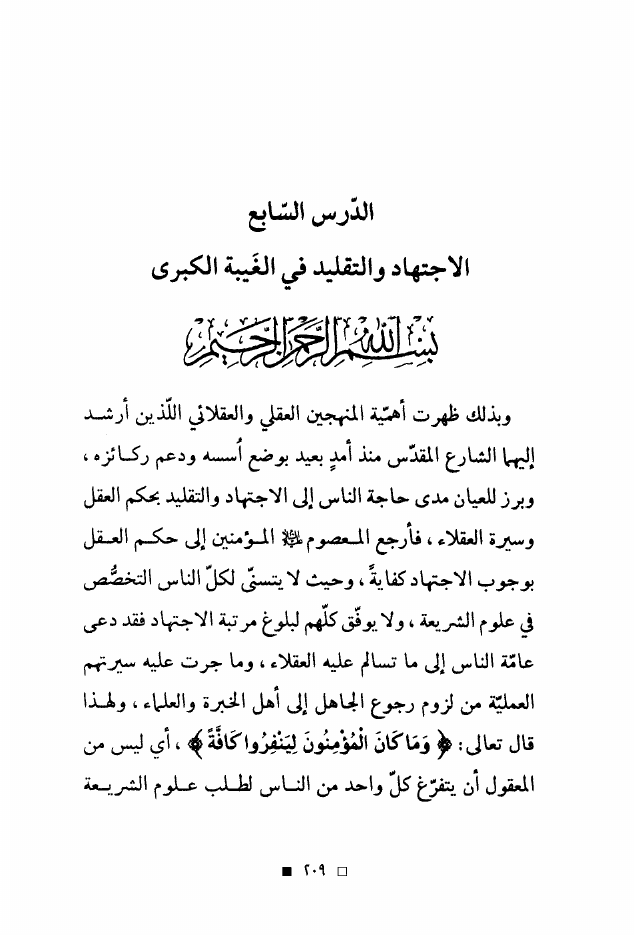 الدّرس السّابع
الاجتهاد والتقليد في الغَيبة الكبرى
بسم الله الرحمن الرحيم
وبذلك ظهرت أهمّية المنهجين العقلي والعقلائي اللّذين أرشد
إليهما الشارع المقدّس منذ أمدٍ بعيد بوضع اُسسه ودعم ركائزه ،
وبرز للعيان مدى حاجة الناس إلى الاجتهاد والتقليد بحكم العقل
وسيرة العقلاء ، فأرجع المعصوم ﷼ المؤمنين إلى حكم العقل
بوجوب الاجتهاد كفايةً ، وحيث لا يتسنّى لكلّ الناس التخصُّص
في علوم الشريعة ، ولا يوفّق كلّهم لبلوغ مرتبة الاجتهاد فقد دعى
عامّة الناس إلى ما تسالم عليه العقلاء ، وما جرت عليه سيرتهم
العمليّة من لزوم رجوع الجاهل إلى أهل الخبرة والعلماء ، ولهذا
قال تعالى : ﴿ وَمَا كَانَ الْمُؤْمِنُونَ لِيَنْفِرُوا كَافَّةً ﴾ ، أي ليس من
المعقول أن يتفرّغ كلّ واحد من الناس لطلب علوم الشريعة
□ ٢٠٩ ■